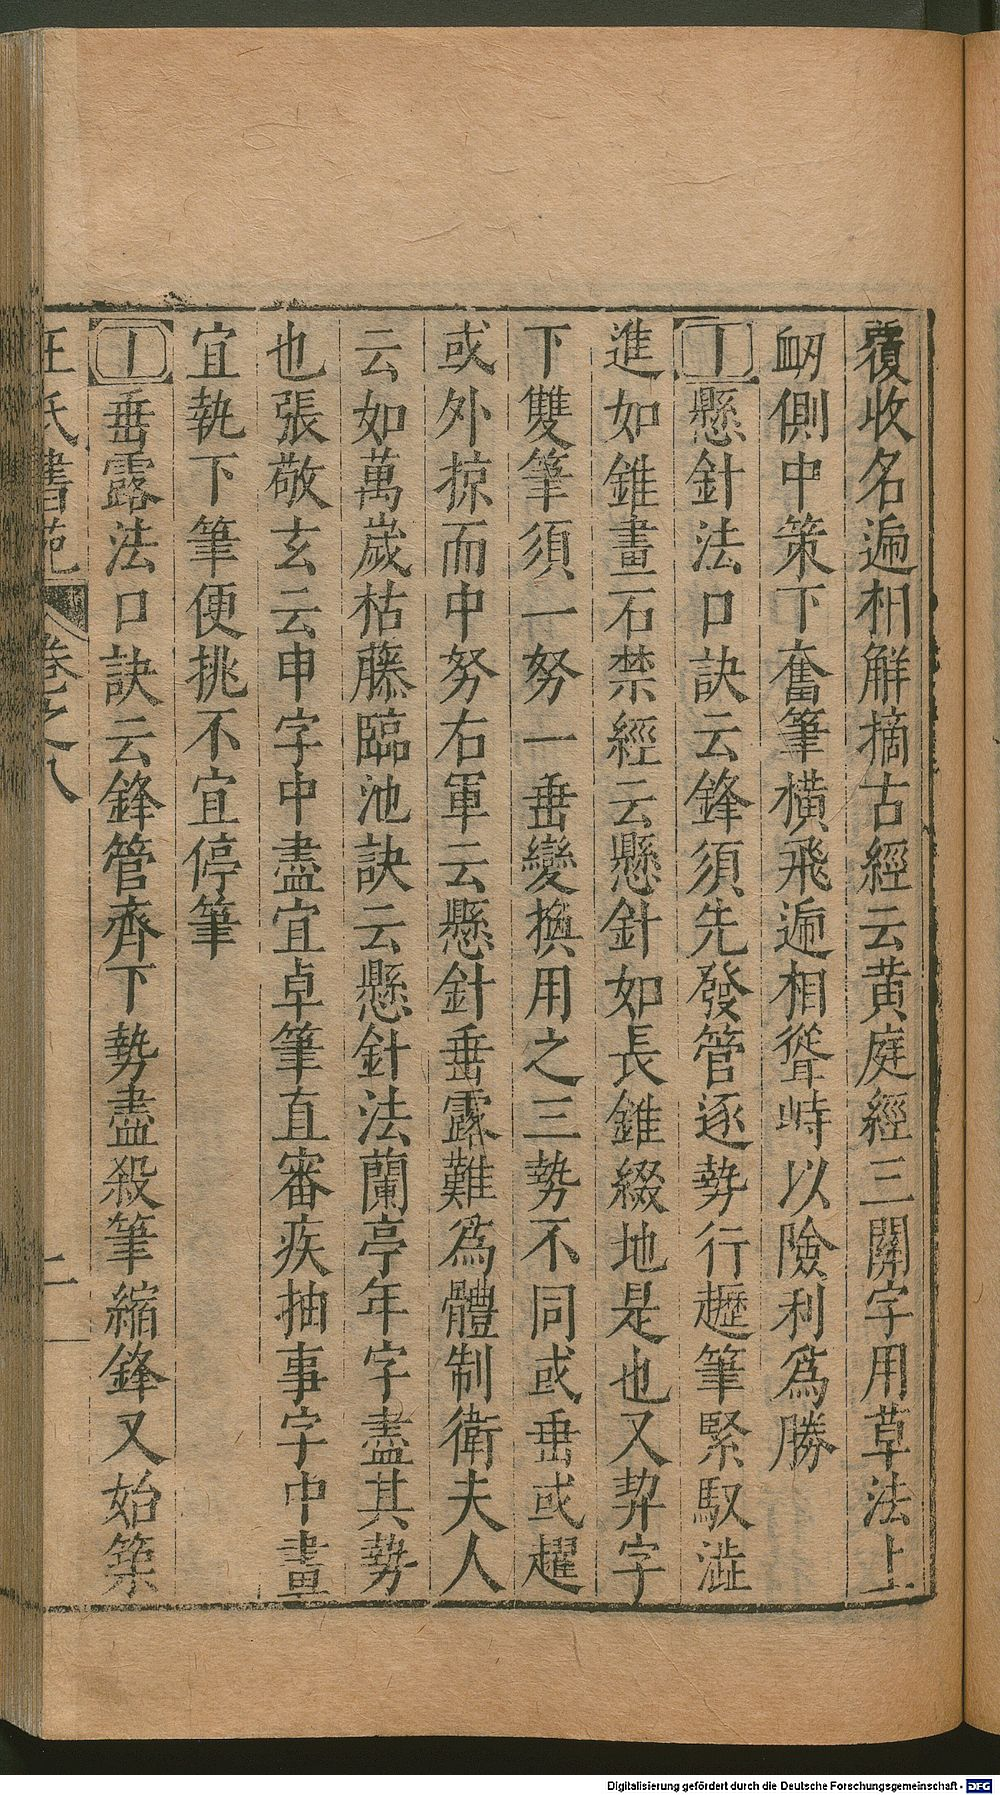 覆收名遍相解摘古經云黃庭經三關字用草法上
衂側中策下奮筆橫飛遍相聳峙以險利為勝
丨懸針法口訣云鋒須先發管逐勢行趯筆緊馭澁
進如錐畫石禁經云懸針如長錐綴地是也又弊字
下雙筆須一努一垂變換用之三勢不同或垂或趯
或外掠而中努右軍云懸針垂露難為體制衛夫人
云如萬歲枯藤臨池訣云懸針法蘭亭年字盡其勢
也張敬玄云申字中盡宜卓筆直審疾抽事字中畫
宜執下筆便挑不宜停筆
丨垂露法口訣云鋒管齊下勢盡殺筆縮鋒又始築
王氏書苑 卷之八 二
Digitalisierung gefördert durch die Deutsche Forschungsgemeinschaft - DFG